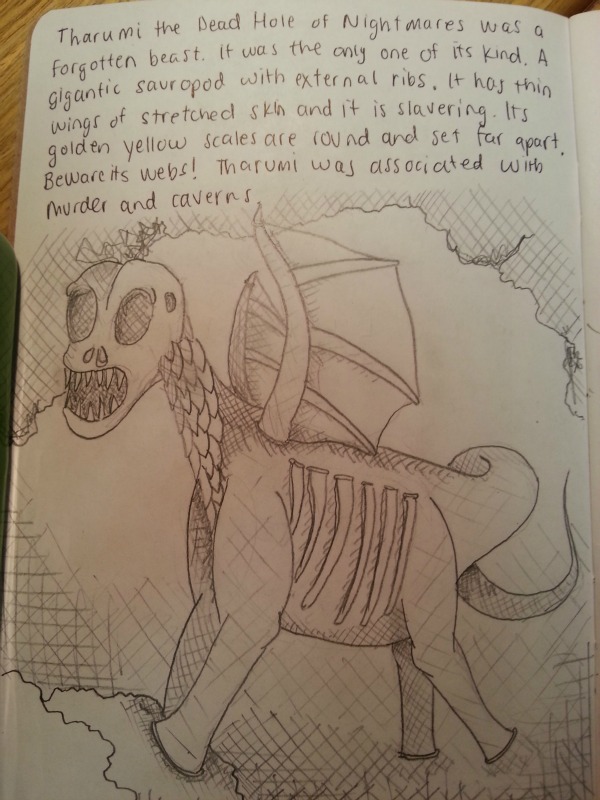 Tharumi the Dead Hole of Nightmares was a
forgotten beast. It was the only one of its kind. A
gigantic sauropod with external ribs. It has thin
wings of stretched skin and it is slavering. Its
golden yellow scales are round and set far apart.
Beware its webs! Tharumi was associated with
murder and caverns.